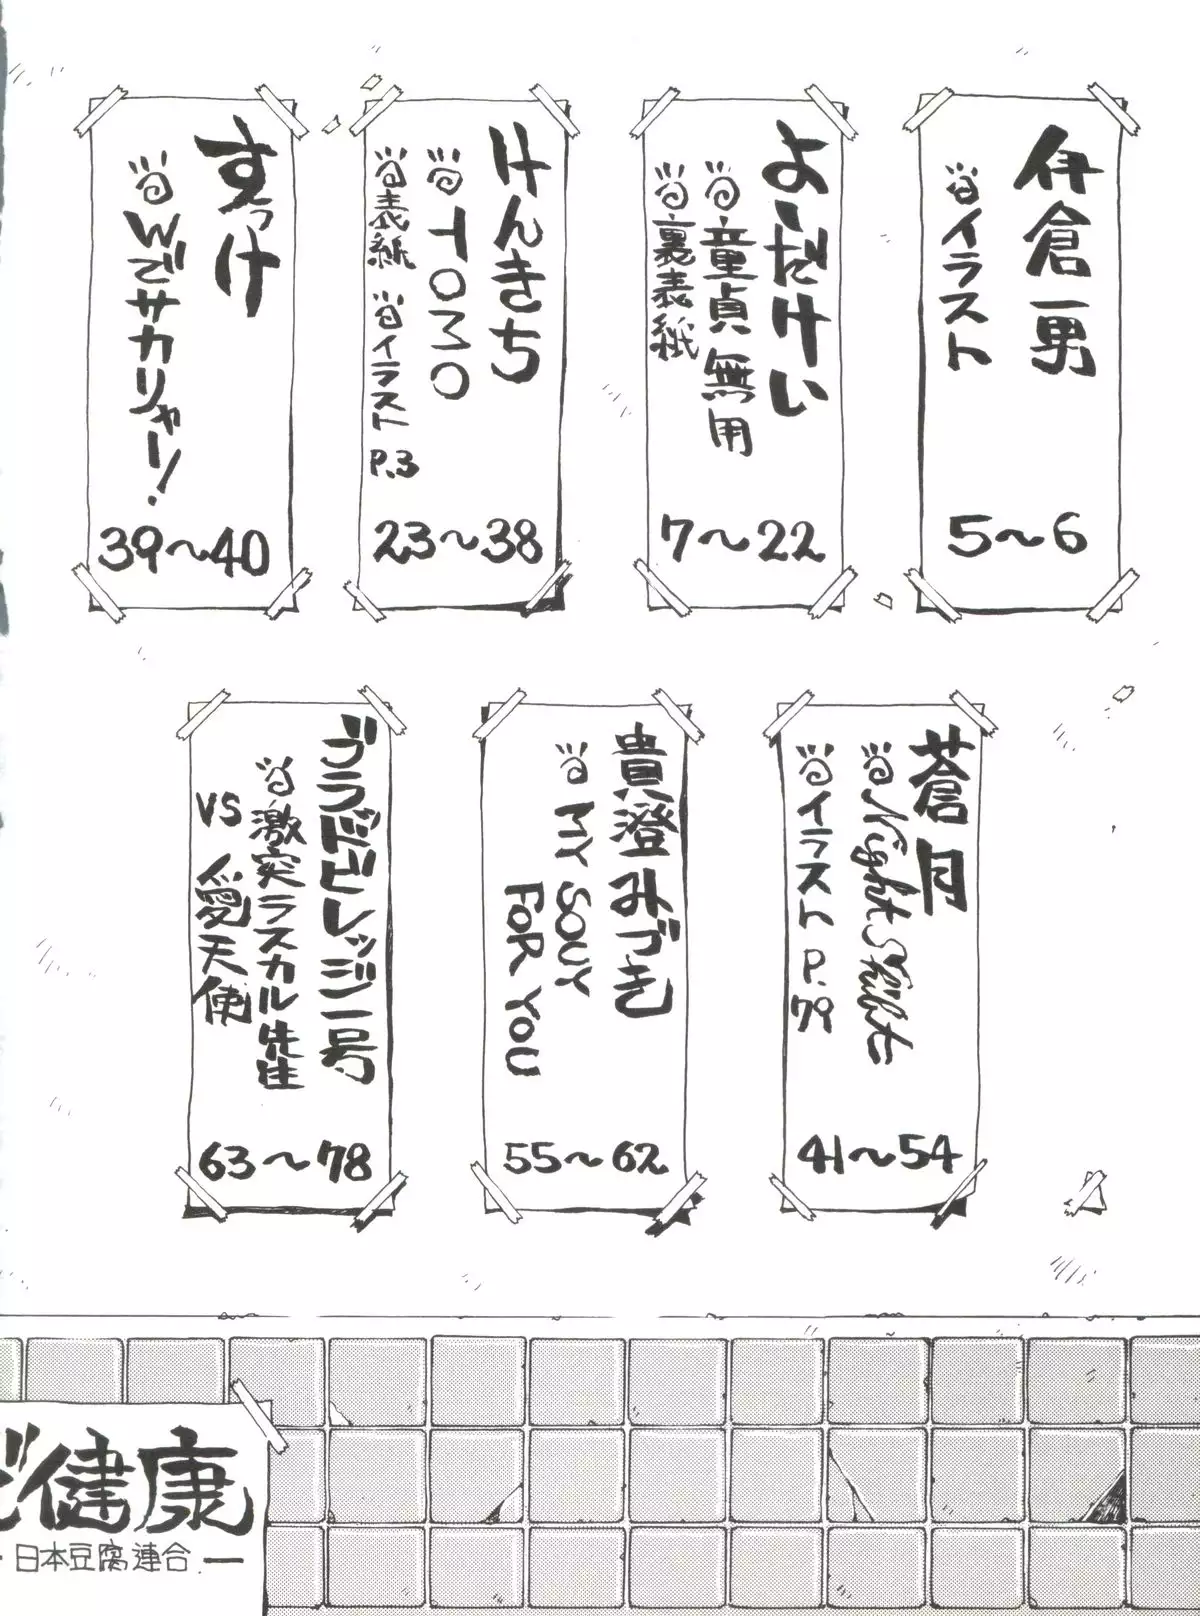 伊倉一男
イラスト
5～6
よーだけい
童貞無用
裏表紙
7～22
けんきち
TOMO
表紙 イラスト P.3
23～38
すっけ
Wでサカリャー!
39～40
蒼月
Night Shift
イラスト P.79
41～54
貴澄みづき
MY SOUY
FOR YOU
55～62
ブラドビレッジ一号
激突ラスカル先生
VS 愛天使
63～78
で健康
日本豆腐連合